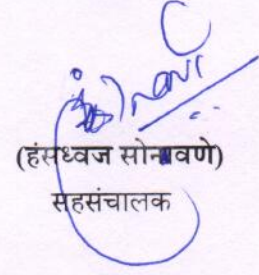 (हंसध्वज सोनवणे)
सहसंचालक